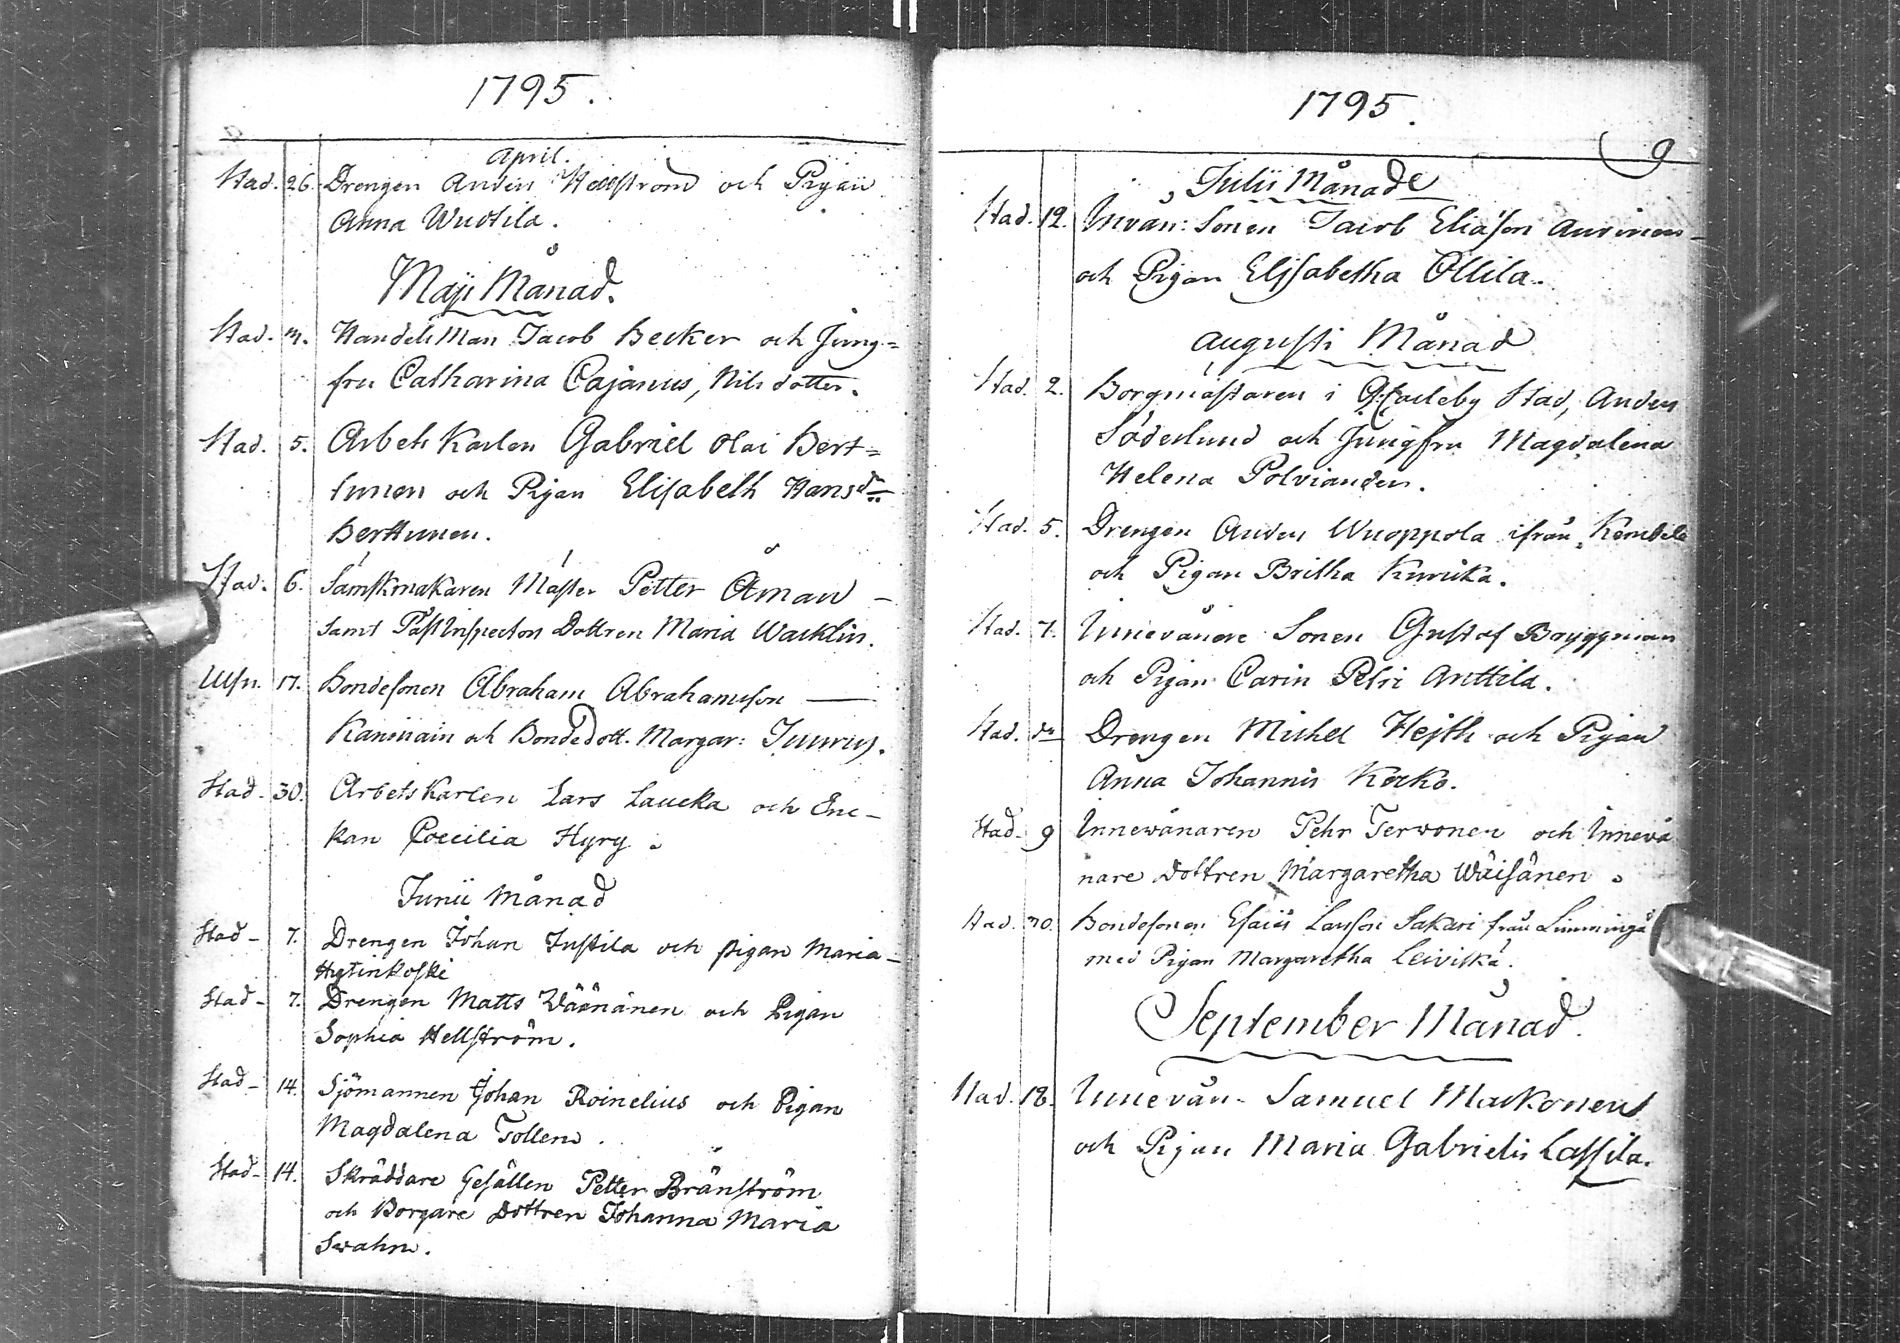 1795.
April.
Stad. 26. Drengen Anders Hellström och Pigan
Anna Wuotila.
Maji Månad.
Stad. 3. HandelsMan Jacob Becker och Jung=
fru Catharina Cajanus, Nils dotter.
Stad. 5. Arbets Karlen Gabriel Olai Bert=
tunen och Pigan Elisabeth Hansdr
Berttunen.
Stad. 6. Sämskmakaren Mäster Petter Åman –
samt PåstInspectors Dottren Maria Wacklin.
Ulsn. 17. Bondesonen Abraham Abrahamsson —
och Bondedott. Margar:
Stad- 30. Arbetskarlen Lars Laucka och En-
kan Coecilia Hyry.
Junii Månad
Stad- 7. Drengen Johan Justila och pigan Maria-
Hytinkoski
Stad- 7. Drengen Matts Wäänänen och Pigan
Sophia Hellström.
Stad- 14. Sjömannen Johan Roinelius och Pigan
Magdalena Tollen.
Stad- 14. Skräddare Gesällen Petter Bränström
och Borgare Dottren Johanna Maria
Swahn.
1795.
9
Julii Månad
Stad. 12. Invån: Sonen Jacob Eliasson
och Pigan Elisabetha Ollila.
Augusti Månad
Stad. 2. Borgmästaren i G:Carleby Stad, Anders
Söderlund och Jungfru Magdalena
Helena Polviander.
Stad. 5. Drengen Anders Wuoppola ifrån Kembele
och Pigan Britha Kurika.
Stad. 7. Innevånare Sonen Gustaf Bryggman
och Pigan Carin Petri Anttila.
Stad. do Drengen Michel Hejth och Pigan
Anna Johannis Korko.
Stad- 9 Innewånaren Pehr Terwonen och Innevå
nare Dottren Margaretha Wäisänen.
Stad. 30. Bondesonen Esaias Larsson Sakari från Limmingå
med Pigan Margaretha Leiviskä.
September Månad.
Stad. 18. Innevån- Samuel Markonen
och Pigan Maria Gabrielis Lassila.